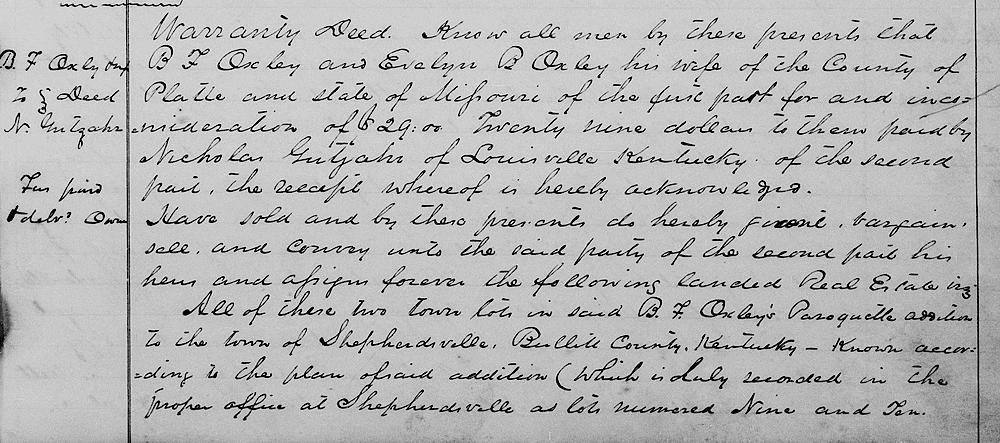 Warranty Deed. Know all men by these presents that
B. F Oxley &wf
B F Oxley and Evelyn B Oxley his wife of the County of
to } Deed
Platte and state of Missouri of the first part for and in con=
N. Gutzahr
=nsideration of $29.00 Twenty nine dollars to them paid by
Nicholas Gutzahr of Louisville Kentucky. of the second
part, the receipt whereof is hereby acknowledged.
Fees paid
& delv? Own
Have sold and by these presents do hereby grant, bargain,
sell, and convey unto the said party of the second part his
heirs and assigns forever the following landed Real Estate viz
All of these two town lots in said B. F. Oxley's Paroquette addition
to the town of Shepherdsville, Bullitt County, Kentucky - Known accor-
=ding to the plan of said addition (which is duly recorded in the
proper office at Shepherdsville as lots numered Nine and Ten.